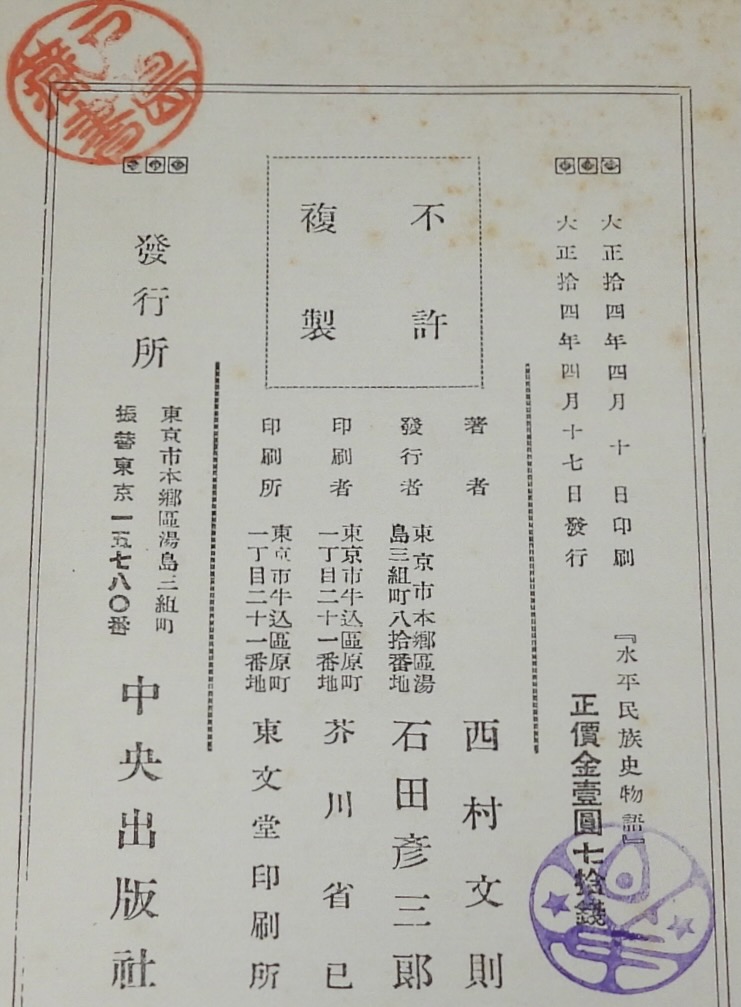 大正拾四年四月十日印刷
大正拾四年四月十七日發行
『水平民族史物語』
正價金壹圓七拾錢
不許
複製
著者
西村文則
發行者
東京市本鄉區湯
島三組町八拾番地
石田彥三郞
印刷者
東京市牛込區原町
一丁目二十一番地
芥川省已
印刷所
東京市牛込區原町
一丁目二十一番地
東文堂印刷所
發行所
東京市本鄉區湯島三組町
振替東京一五七八〇番
中央出版社